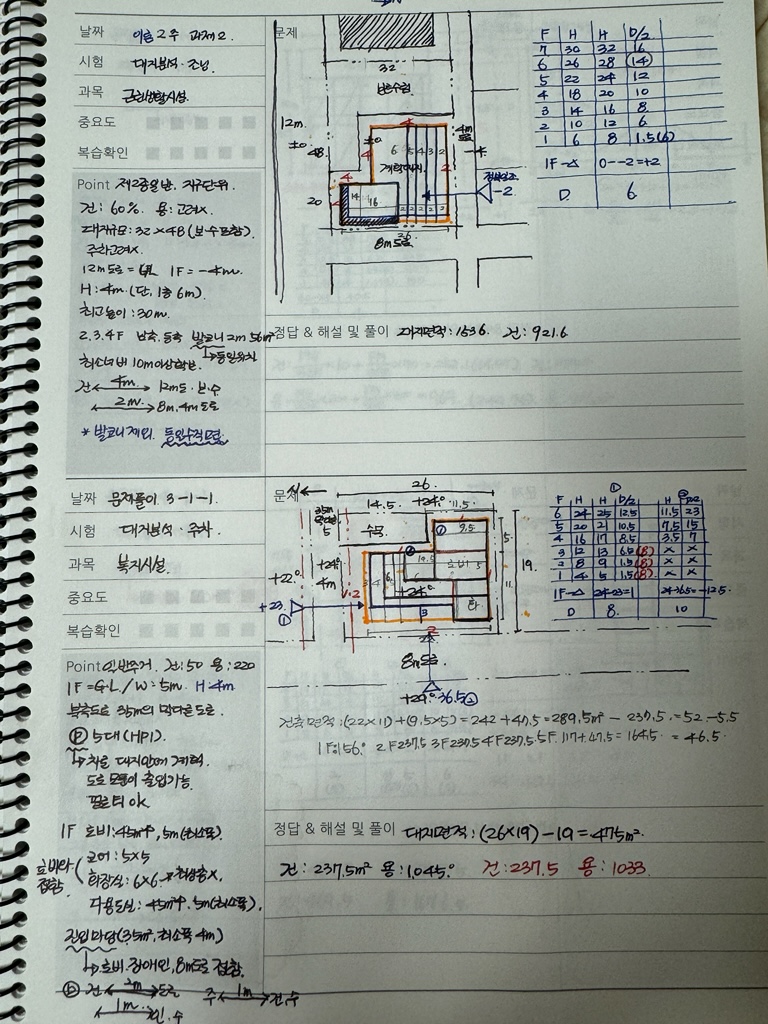 날짜 이론 2주 과제2.
시험 대지분석·조닝
과목 근린생활시설
중요도
복습확인
Point 제2종일반. 지구단위.
건: 60% 용: 고려X.
대지규모: 32×48 (보·수포함).
주차고려X.
1F = -4m.
H: 4m (단, 1층 6m)
최고높이: 30m.
2.3.4F 남측, 동측 발코니 2m 56m²
→동일위치
최소너비 10m이상확보.
건 ←4m→ 12m도·보·수
←2m→ 8m, 4m도로
* 발코니제외. 동일수직면.
문제
32
보존수림
12m.
±0
48
20
±0
4
4
4
6 5 4 3 2
계획대지
4m도로
-2
14
16
2 2 2 2 2
36
8m도로
F H H D/2
7 30 32 16
6 26 28 (14)
5 22 24 12
4 18 20 10
3 14 16 8
2 10 12 6
1 6 8 1.5(6)
1F-△ 0--2=+2
D 6
정답 & 해설 및 풀이 대지면적: 1536 건: 921.6
날짜 문제풀이 3-1-1.
시험 대지분석·주차
과목 복지시설
중요도
복습확인
Point 일반주거. 건: 50 용: 220
1F=G.L / W: 5m. H: 4m
북측도로 35m의 막다른도로
Ⓟ 5대(HP1).
↳차로 대지안에 계획
도로모퉁이 출입가능.
필로티 ok
1F 로비: 45m²↑, 5m(최소폭)
로비와 접함
코어: 5×5
화장실: 6×6 → 최상층X.
다용도실: 45m²↑. 5m(최소폭).
진입마당(35m², 최소폭 4m)
↳로비·장애인, 8m도로 접함.
ⓑ 건 ←2m→ 도로 주 ←1m→ 건,수
←1m→ 인·수
문제
26.
14.5 +24.0 11.5
35m
5
수목
9.5
5
+22.0
+24.0
4m
2
19.5
로비 5
11
19.
+24.0
+23.
①
3
화
2
8m도로.
+29.0 36.5②
① ②
F H H D/2 H D/2
6 24 25 12.5 11.5 23
5 20 21 10.5 7.5 15
4 16 17 8.5 3.5 7
3 12 13 6.5(8) × ×
2 8 9 1.5(8) × ×
1 4 5 1.5(8) × ×
1F-△ 24-23=1 24-36.5=-12.5
D 8. 10
건축면적: (22×11)+(9.5×5)=242+47.5=289.5m² - 237.5=52 -5.5
1F: 156.0 2F 237.5 3F 237.5 4F 237.5. 5F. 117+47.5=164.5. = 46.5.
정답 & 해설 및 풀이 대지면적: (26×19)-19=475m².
건: 237.5m² 용: 1,045.0 건: 237.5 용: 1033.